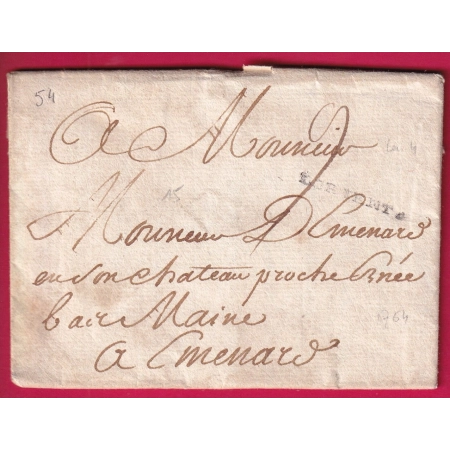 54
A Monsieur
Monsieur D Emenard
en son chateau proche Bnée
bas Maine
A Emenard
1764
15